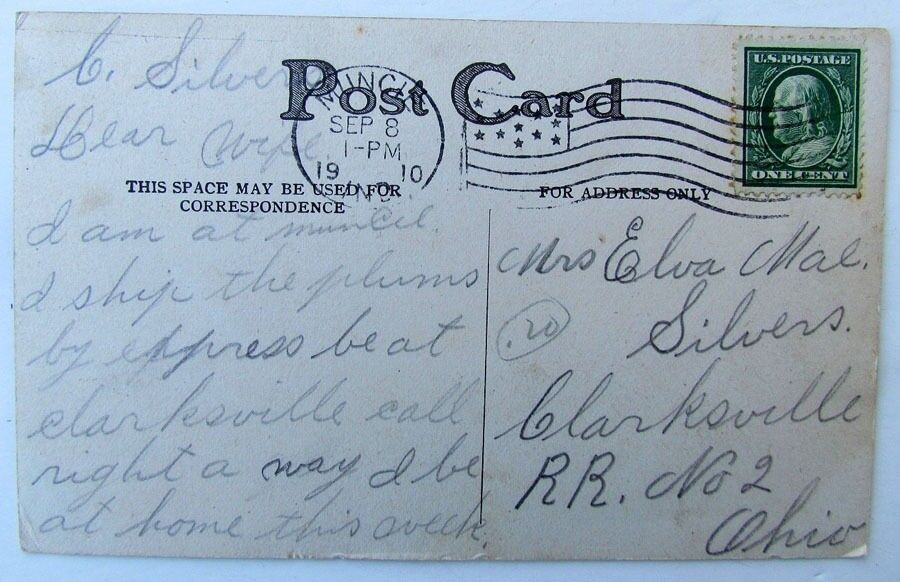 C. Silvers
Post Card
U.S. POSTAGE
ONE CENT
MUNCIE
SEP 8
1-PM
19 10
IND.
Dear Wife
THIS SPACE MAY BE USED FOR
CORRESPONDENCE
FOR ADDRESS ONLY
I am at muncie.
I ship the plums
by express be at
clarksville call
right a way I be
at home this week.
Mrs Elva Mae.
Silvers.
Clarksville
RR. No 2
Ohio